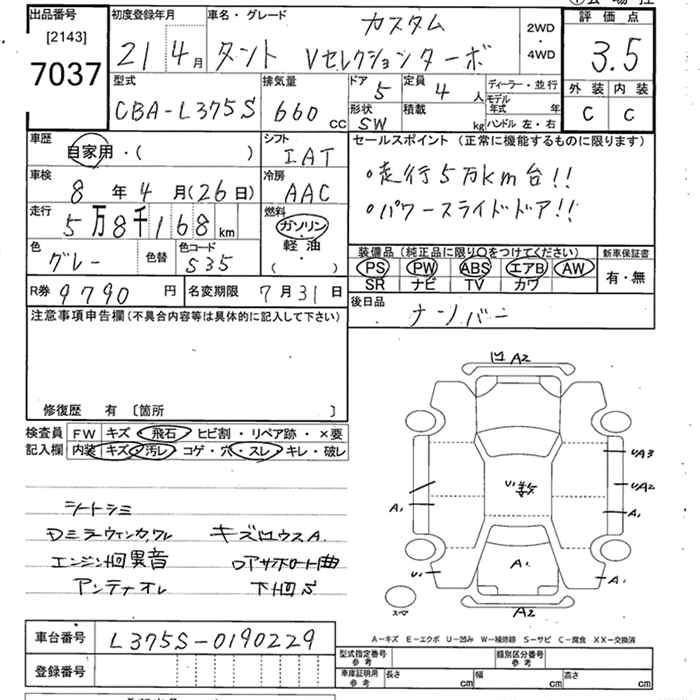 出品番号 初度登録年月 車名・グレード カスタム 2WD・4WD 評価点
[2143]
7037 21年4月 タント Vセレクションターボ 3.5
型式 排気量 ドア 定員 ディーラー・並行 外装 内装
CBA-L375S 660cc 5 4人 モデル年式 年 C C
形状 積載 kg ハンドル 左・右
SW
車歴 シフト セールスポイント (正常に機能するものに限ります)
自家用・( ) IAT
車検 8年4月(26日) 冷房 AAC ・走行5万km台!!
走行 5万8千168km 燃料 ガソリン・軽油( ) ・パワースライドドア!!
色 グレー 色替 色コード S35
装備品(純正品に限り○をつけてください) 新車保証書
PS PW ABS エアB AW 有・無
SR ナビ TV カワ
R券 9790円 名変期限 7月31日 後日品 ナンバー
注意事項申告欄(不具合内容等は具体的に記入して下さい)
修復歴 有 〔箇所 〕
検査員記入欄 FW キズ・飛石・ヒビ割・リペア跡・×要
内装 キズ・汚レ・コゲ・穴・スレ・キレ・破レ
シートシミ
ミラーウィンカワレ キズUウスA
エンジン回異音 ロアサポート曲
アンテナオレ 下回S
A2
UA3
UA2
A1
A1
A1
U1
A1
A2
A-キズ E-エクボ U-凹み W-補修跡 S-サビ C-腐食 XX-交換済
車台番号 L375S-0190229
登録番号
型式指定番号 参考 類別区分番号 参考
車庫証明用 参考 長さ cm 幅 cm 高さ cm